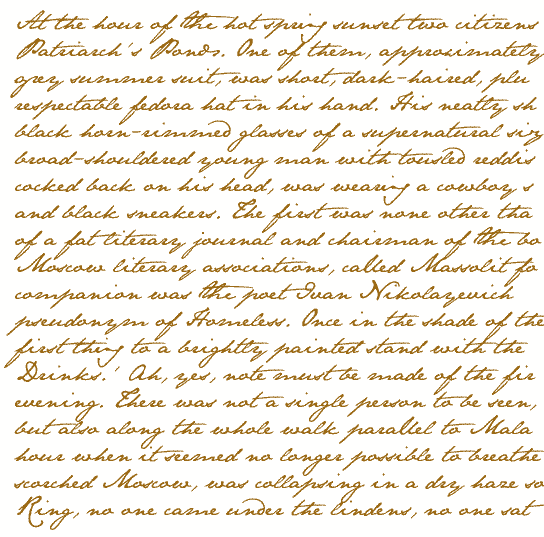 At the hour of the hot spring sunset two citizens
Patriarch's Ponds. One of them, approximately
grey summer suit, was short, dark-haired, plu
respectable fedora hat in his hand. His neatly sh
black horn-rimmed glasses of a supernatural siz
broad-shouldered young man with tousled reddis
cocked back on his head, was wearing a cowboy s
and black sneakers. The first was none other tha
of a fat literary journal and chairman of the bo
Moscow literary associations, called Massolit fo
companion was the poet Ivan Nikolayevich
pseudonym of Homeless. Once in the shade of the
first thing to a brightly painted stand with the
Drinks.' Ah, yes, note must be made of the fir
evening. There was not a single person to be seen,
but also along the whole walk parallel to Mala
hour when it seemed no longer possible to breathe
scorched Moscow, was collapsing in a dry haze so
Ring, no one came under the lindens, no one sat